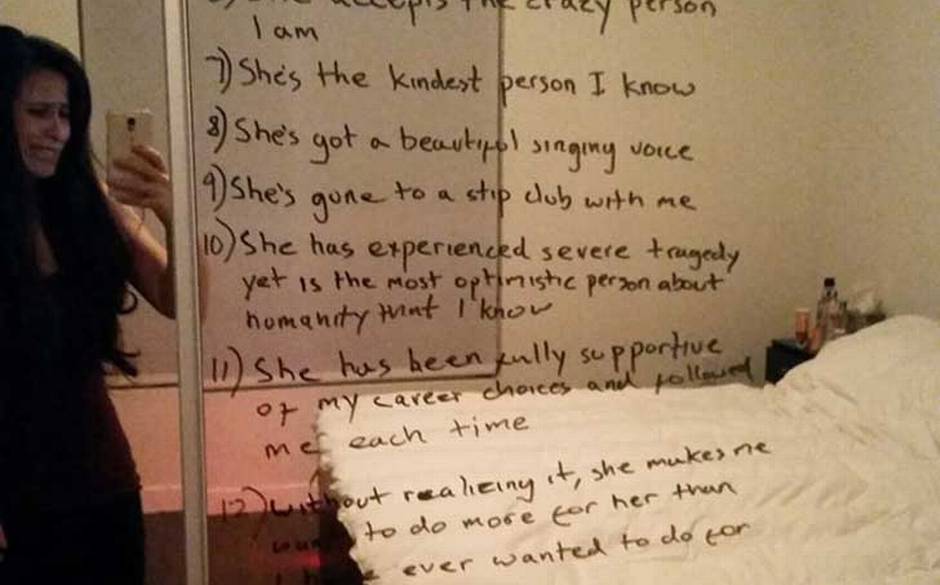 accepts the crazy person
I am
7) She's the kindest person I know
8) She's got a beautiful singing voice
9) She's gone to a stip club with me
10) She has experienced severe tragedy
yet is the most optimistic person about
humanity that I know
11) She has been fully supportive
of my career choices and followed
me each time
12) Without realizing it, she makes me
want to do more for her than
I have ever wanted to do for